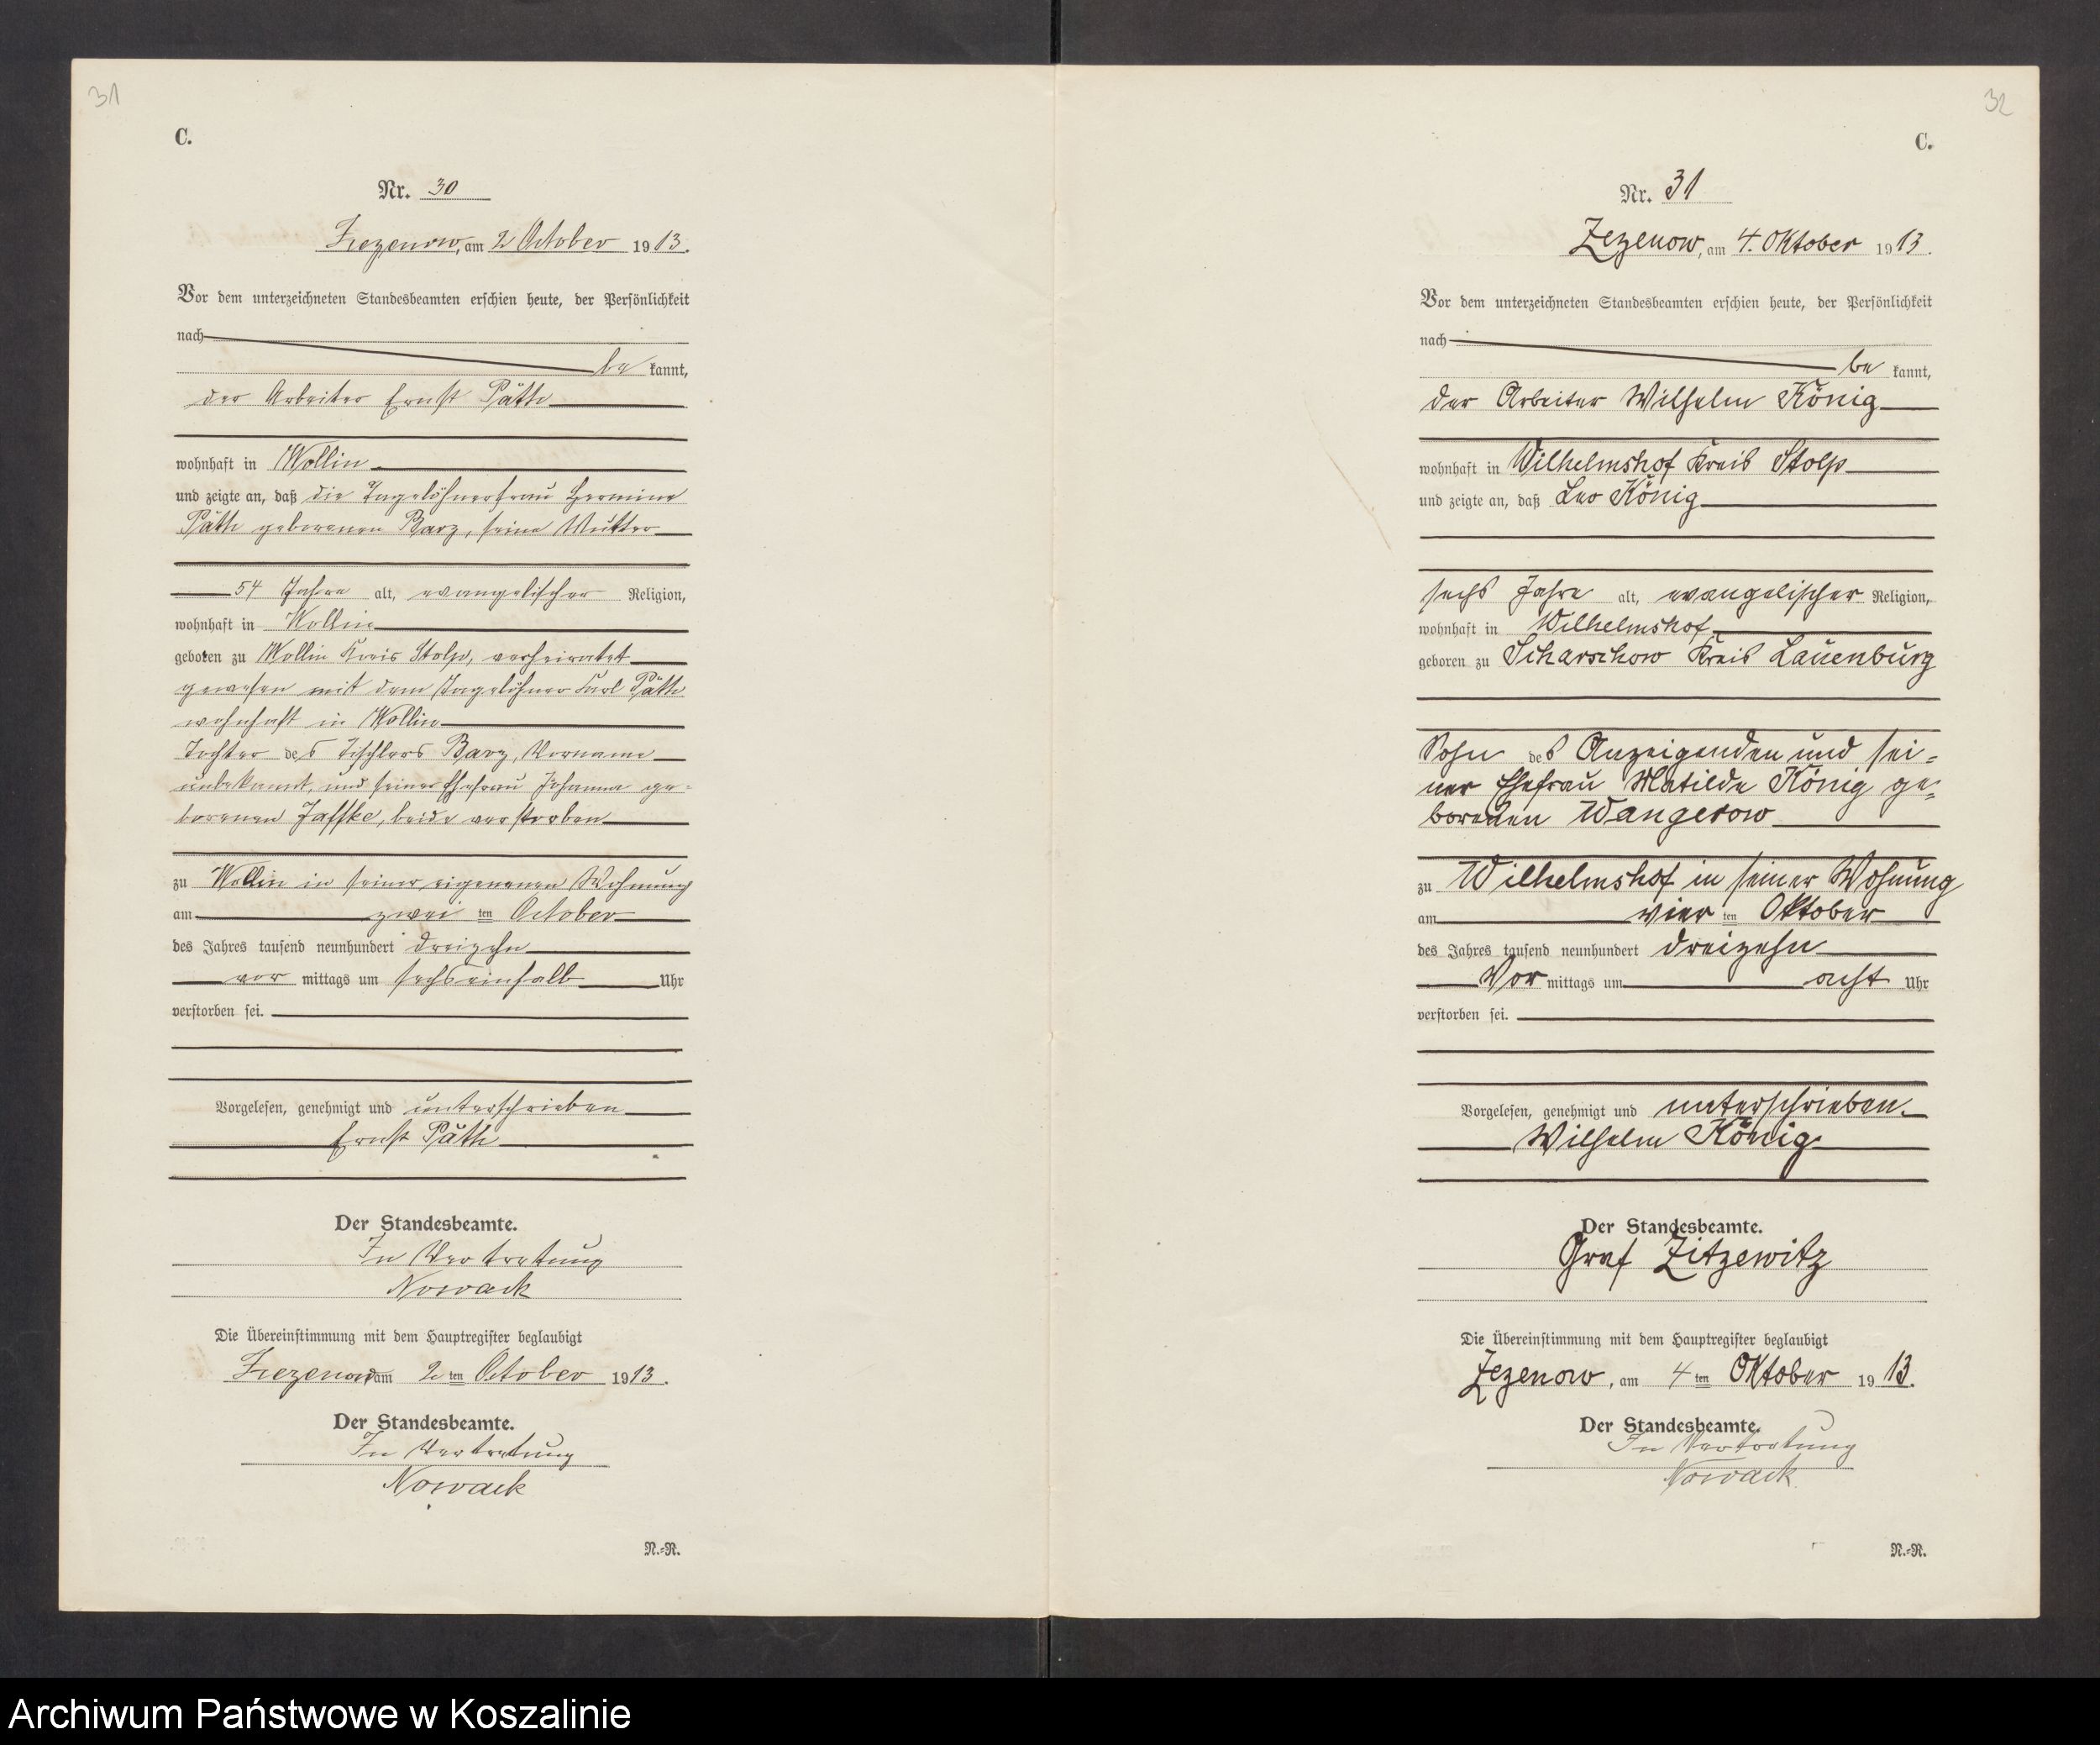 31
C.
Nr. 30
Zezenow, am 2 October 1913.
Vor dem unterzeichneten Standesbeamten erschien heute, der Persönlichkeit
nach
be kannt,
der Arbeiter Ernst Päthe
wohnhaft in Wollin
und zeigte an, daß die Tagelöhnerfrau Hermine
Päth geborenen Barz, seine Mutter
54 Jahre alt, evangelischer Religion,
wohnhaft in Wollin
geboren zu Wollin Kreis Stolp, verheiratet
gewesen mit dem Tagelöhner Karl Päthe
wohnhaft in Wollin
Tochter des Tischlers Barz, Vorname
unbekannt, und seiner Ehefrau Johanna ge-
borenen Jaffke, beide verstorben
zu Wollin in seiner eigenenen Wohnung
am zwei ten October
des Jahres tausend neunhundert dreizehn
vor mittags um sechseinhalb Uhr
verstorben sei.
Vorgelesen, genehmigt und unterschrieben
Ernst Päth
Der Standesbeamte.
In Vertretung
Nowack
Die Übereinstimmung mit dem Hauptregister beglaubigt
Zezenow am 2 ten October 1913.
Der Standesbeamte.
In Vertretung
Nowack
N.-R.
32
C.
Nr. 31
Zezenow, am 4. Oktober 1913.
Vor dem unterzeichneten Standesbeamten erschien heute, der Persönlichkeit
nach
be kannt,
der Arbeiter Wilhelm König
wohnhaft in Wilhelmshof Kreis Stolp
und zeigte an, daß Leo König
sechs Jahre alt, evangelischer Religion,
wohnhaft in Wilhelmshof
geboren zu Scharschow Kreis Lauenburg
Sohn des Anzeigenden und sei-
ner Ehefrau Matilde König ge-
borenen Wangerow
zu Wilhelmshof in seiner Wohnung
am vier ten Oktober
des Jahres tausend neunhundert dreizehn
Vor mittags um acht Uhr
verstorben sei.
Vorgelesen, genehmigt und unterschrieben.
Wilhelm König.
Der Standesbeamte.
Graf Zitzewitz
Die Übereinstimmung mit dem Hauptregister beglaubigt
Zezenow, am 4 ten Oktober 1913.
Der Standesbeamte.
In Vertretung
Nowack
N.-R.
Archiwum Państwowe w Koszalinie